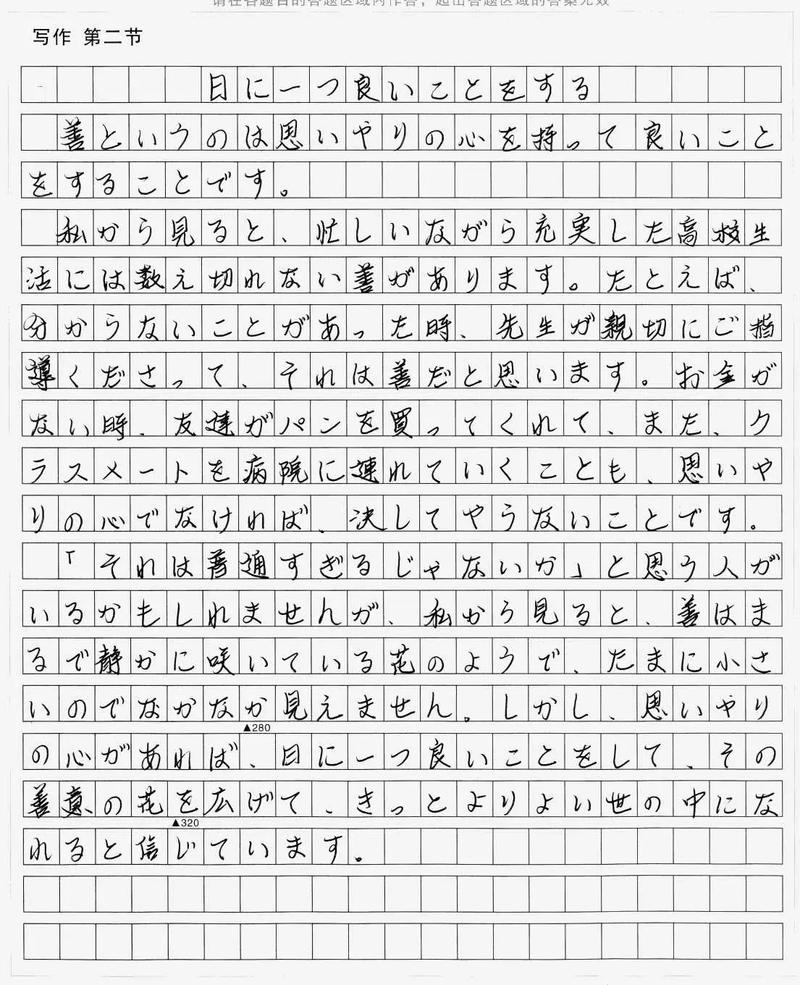 请在各题目的答题区域内作答，超出答题区域的答案无效
写作 第二节
日に一つ良いことをする
善というのは思いやりの心を持って良いこと
をすることです。
私から見ると、忙しいながら充実した高校生
活には数え切れない善があります。たとえば、
分からないことがあった時、先生が親切にご指
導くださって、それは善だと思います。お金が
ない時、友達がパンを買ってくれて、また、ク
ラスメートを病院に連れていくことも、思いや
りの心でなければ、決してやらないことです。
「それは普通すぎるじゃないか」と思う人が
いるかもしれませんが、私から見ると、善はま
るで静かに咲いている花のようで、たまに小さ
いのでなかなか見えません。しかし、思いやり
▲280
の心があれば、日に一つ良いことをして、その
善意の花を広げて、きっとよりよい世の中にな
▲320
れると信じています。